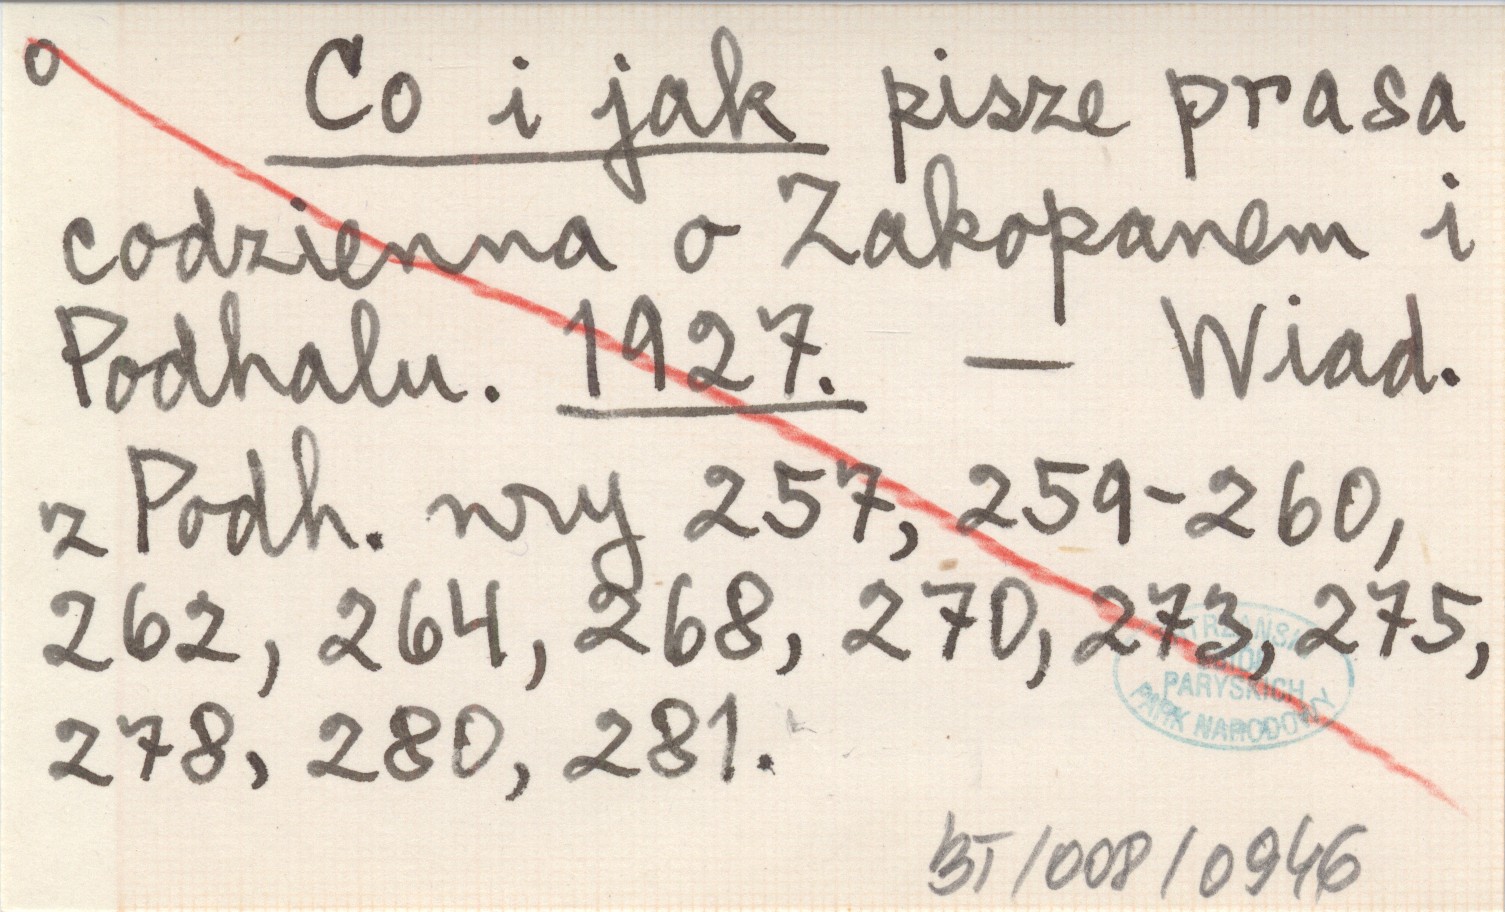 o Co i jak pisze prasa
codzienna o Zakopanem i
Podhalu. 1927. — Wiad.
z Podh. nry 257, 259-260,
262, 264, 268, 270, 273, 275,
278, 280, 281.
PARYSKICH
PARK NARODOWY
BT/008/0946